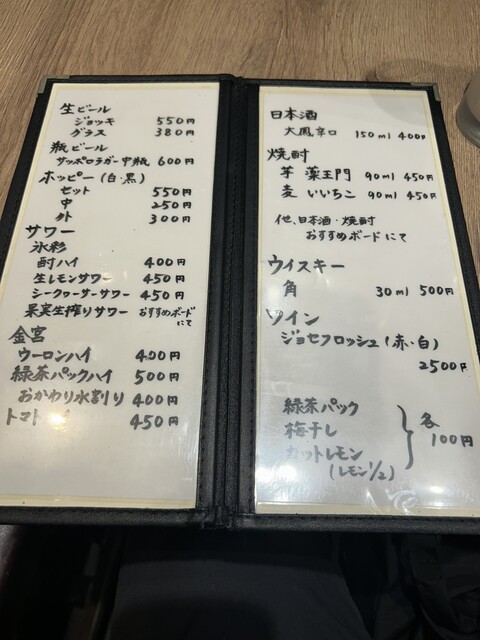 生ビール
ジョッキ 550円
グラス 380円
瓶ビール
サッポロラガー中瓶 600円
ホッピー(白・黒)
セット 550円
中 250円
外 300円
サワー
氷彩
酎ハイ 400円
生レモンサワー 450円
シークヮーサーサワー 450円
果実生搾りサワー おすすめボードにて
金宮
ウーロンハイ 400円
緑茶パックハイ 500円
おかわり水割り 400円
トマト 450円
日本酒
大鳳辛口 150ml 400円
焼酎
芋 薬王門 90ml 450円
麦 いいちこ 90ml 450円
他、日本酒・焼酎
おすすめボードにて
ウイスキー
角 30ml 500円
ワイン
ジョセフロッシュ(赤・白)
2500円
緑茶パック
梅干し
カットレモン
(レモン1/2)
各
100円